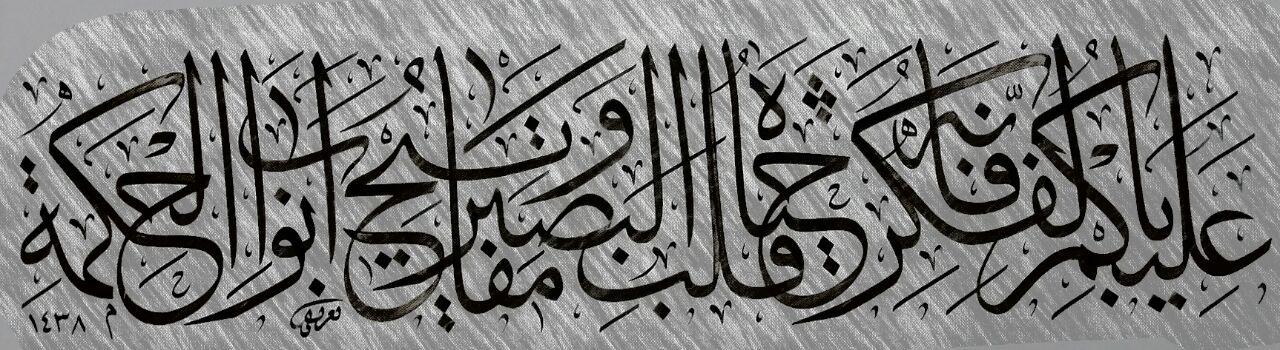 عليكم بالفكر فانّه حياة قلب البصير ومفاتيح ابواب الحكمة
١٤٣٨